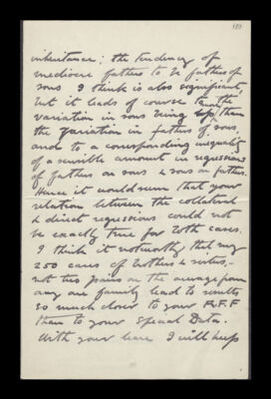 inheritance; the tendency of
mediocre fathers to be fathers of
sons I think is also significant,
but it leads of course to the
variation in sons being less than
the variation in fathers of sons,
and to a corresponding inequality
of a sensible amount in regressions
of fathers on sons & sons on fathers.
Hence it would seem that your
relation between the collateral
& direct regressions could not
be exactly true for both cases.
I think it noteworthy that my
250 cases of brothers & sisters –
not two pairs on the average from
any one family lead to results
so much closer to your R.F.F
than to your Special Data.
With your leave I will keep